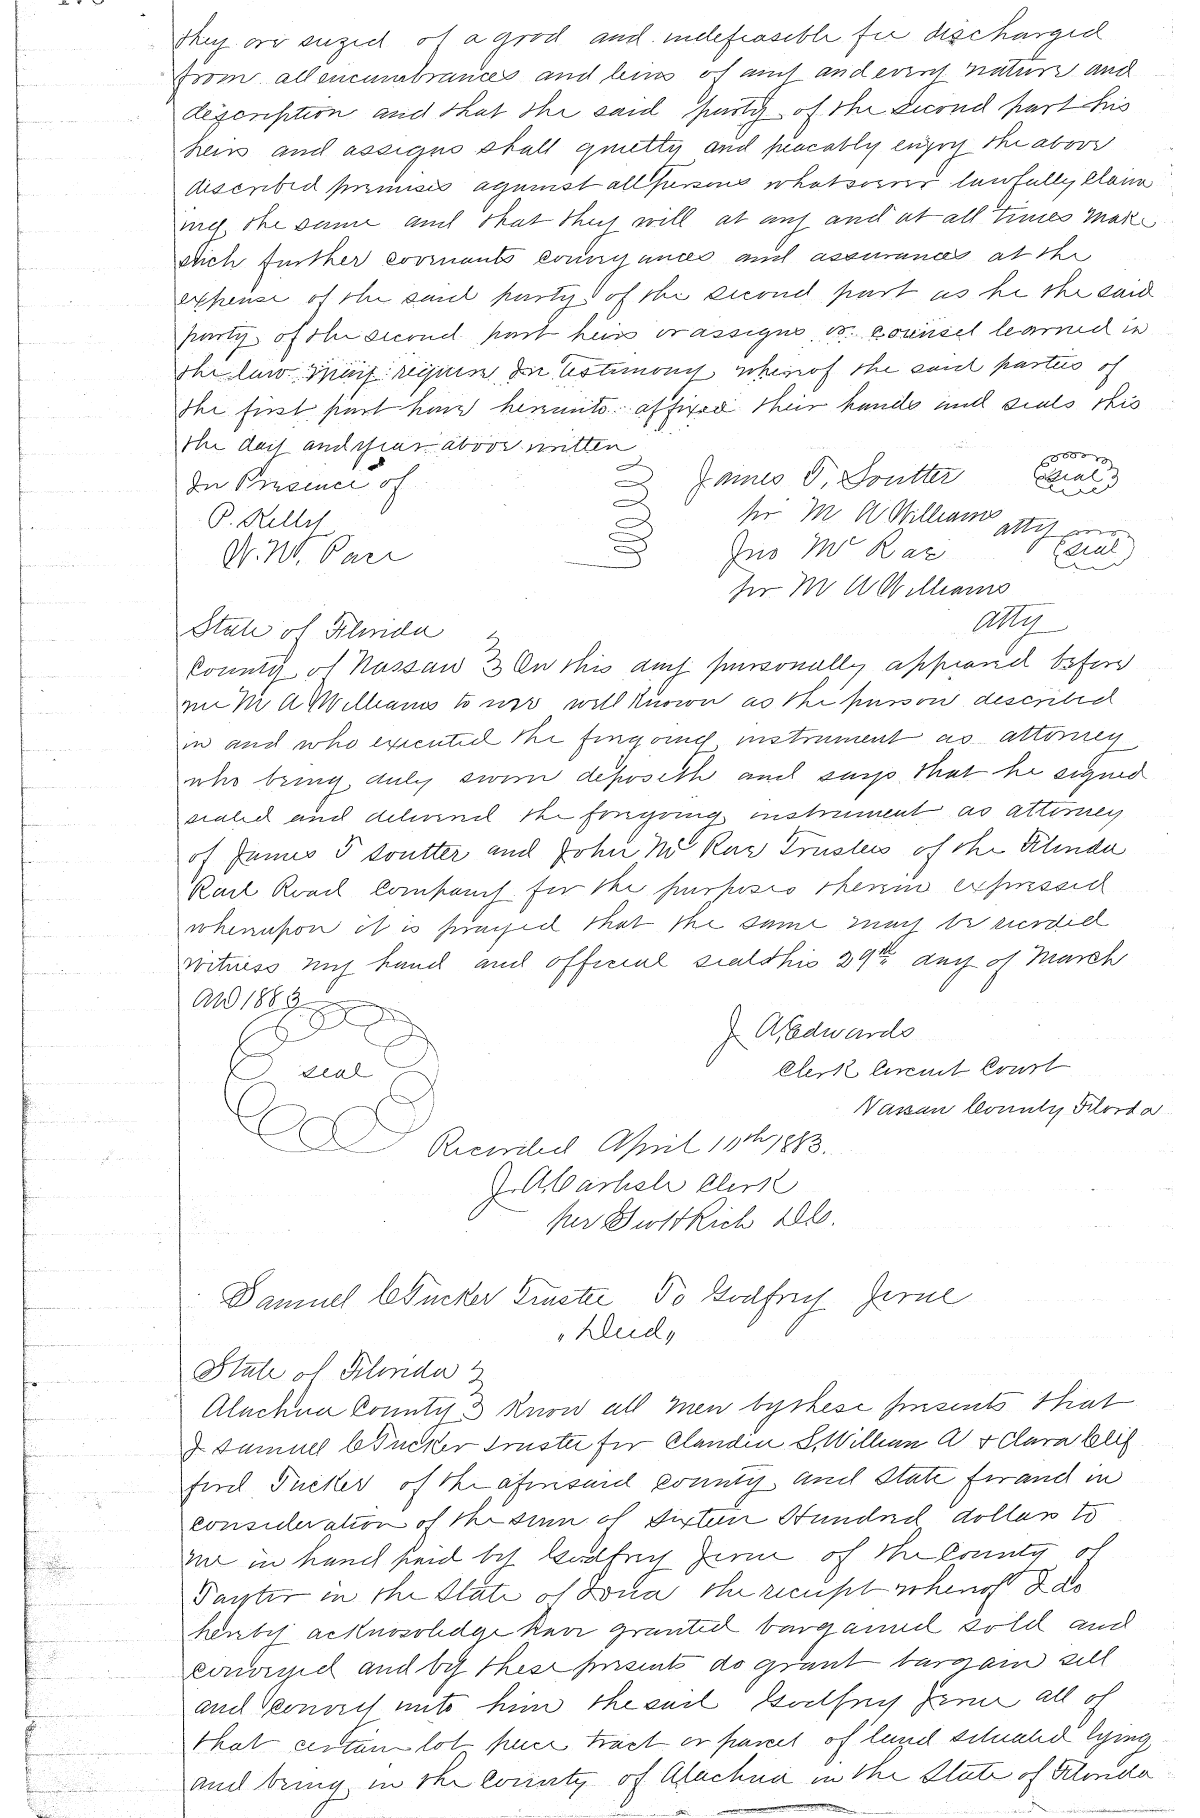 they are seized of a good and indefeasible fee discharged
from all encumbrances and leins of any and every nature and
description and that the said party of the second part his
heirs and assigns shall quietly and peacably enjoy the above
described premises against all persons whatsoever lawfully claim
ing the same and that they will at any and at all times make
such further covenants conveyances and assurances at the
expense of the said party of the second part as he the said
party of the second part heirs or assigns or counsel learned in
the law may require In testimony whereof the said parties of
the first part have hereunto affixed their hands and seals this
the day and year above written
In Presence of
James T. Soutter (seal)
P. Kelly
per M A Williams atty
W. W.
Jno McRae (seal)
per M A Williams
atty
State of Florida
County of Nassau } On this day personally appeared before
me M A Williams to me well known as the person described
in and who executed the foregoing instrument as attorney
who being duly sworn deposeth and says that he signed
sealed and delivered the foregoing instrument as attorney
of James T Soutter and John McRae Trustees of the Florida
Rail Road Company for the purposes therein expressed
whereupon it is prayed that the same may be recorded
witness my hand and official seal this 29th day of March
AD 1883
J A, Edwards
seal
Clerk Circuit Court
Nassau County Florida
Recorded April 10th 1883.
J. A. Carlisle Clerk
per Rich D.C.
Samuel C Tucker Trustee To Godfrey
"Deed"
State of Florida }
Alachua County } Know all men by these presents that
I Samuel C Tucker trustee for Claudia S, William A & Clara Clif
ford Tucker of the aforesaid county and State for and in
consideration of the sum of Sixteen Hundred dollars to
me in hand paid by Godfrey of the County of
in the State of Iowa the receipt whereof I do
hereby acknowledge have granted bargained sold and
conveyed and by these presents do grant bargain sell
and convey unto him the said Godfrey all of
that certain lot piece tract or parcel of land situated lying
and being in the County of Alachua in the State of Florida